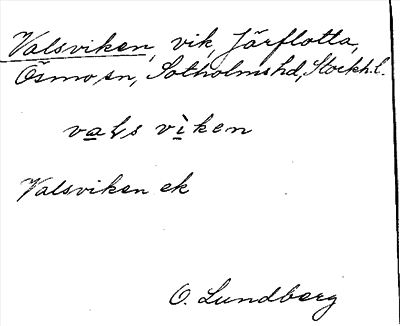 Valsviken, vik, Järflotta,
Ösmo sn, Sotholms hd, Stockh.l.
vals vìken
Valsviken ek
O. Lundberg